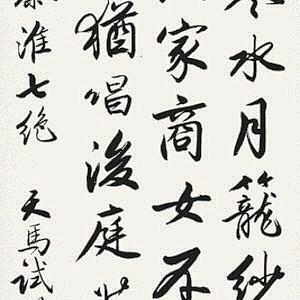 水月籠紗
家商女不
猶唱後庭
淮七絕 天馬試